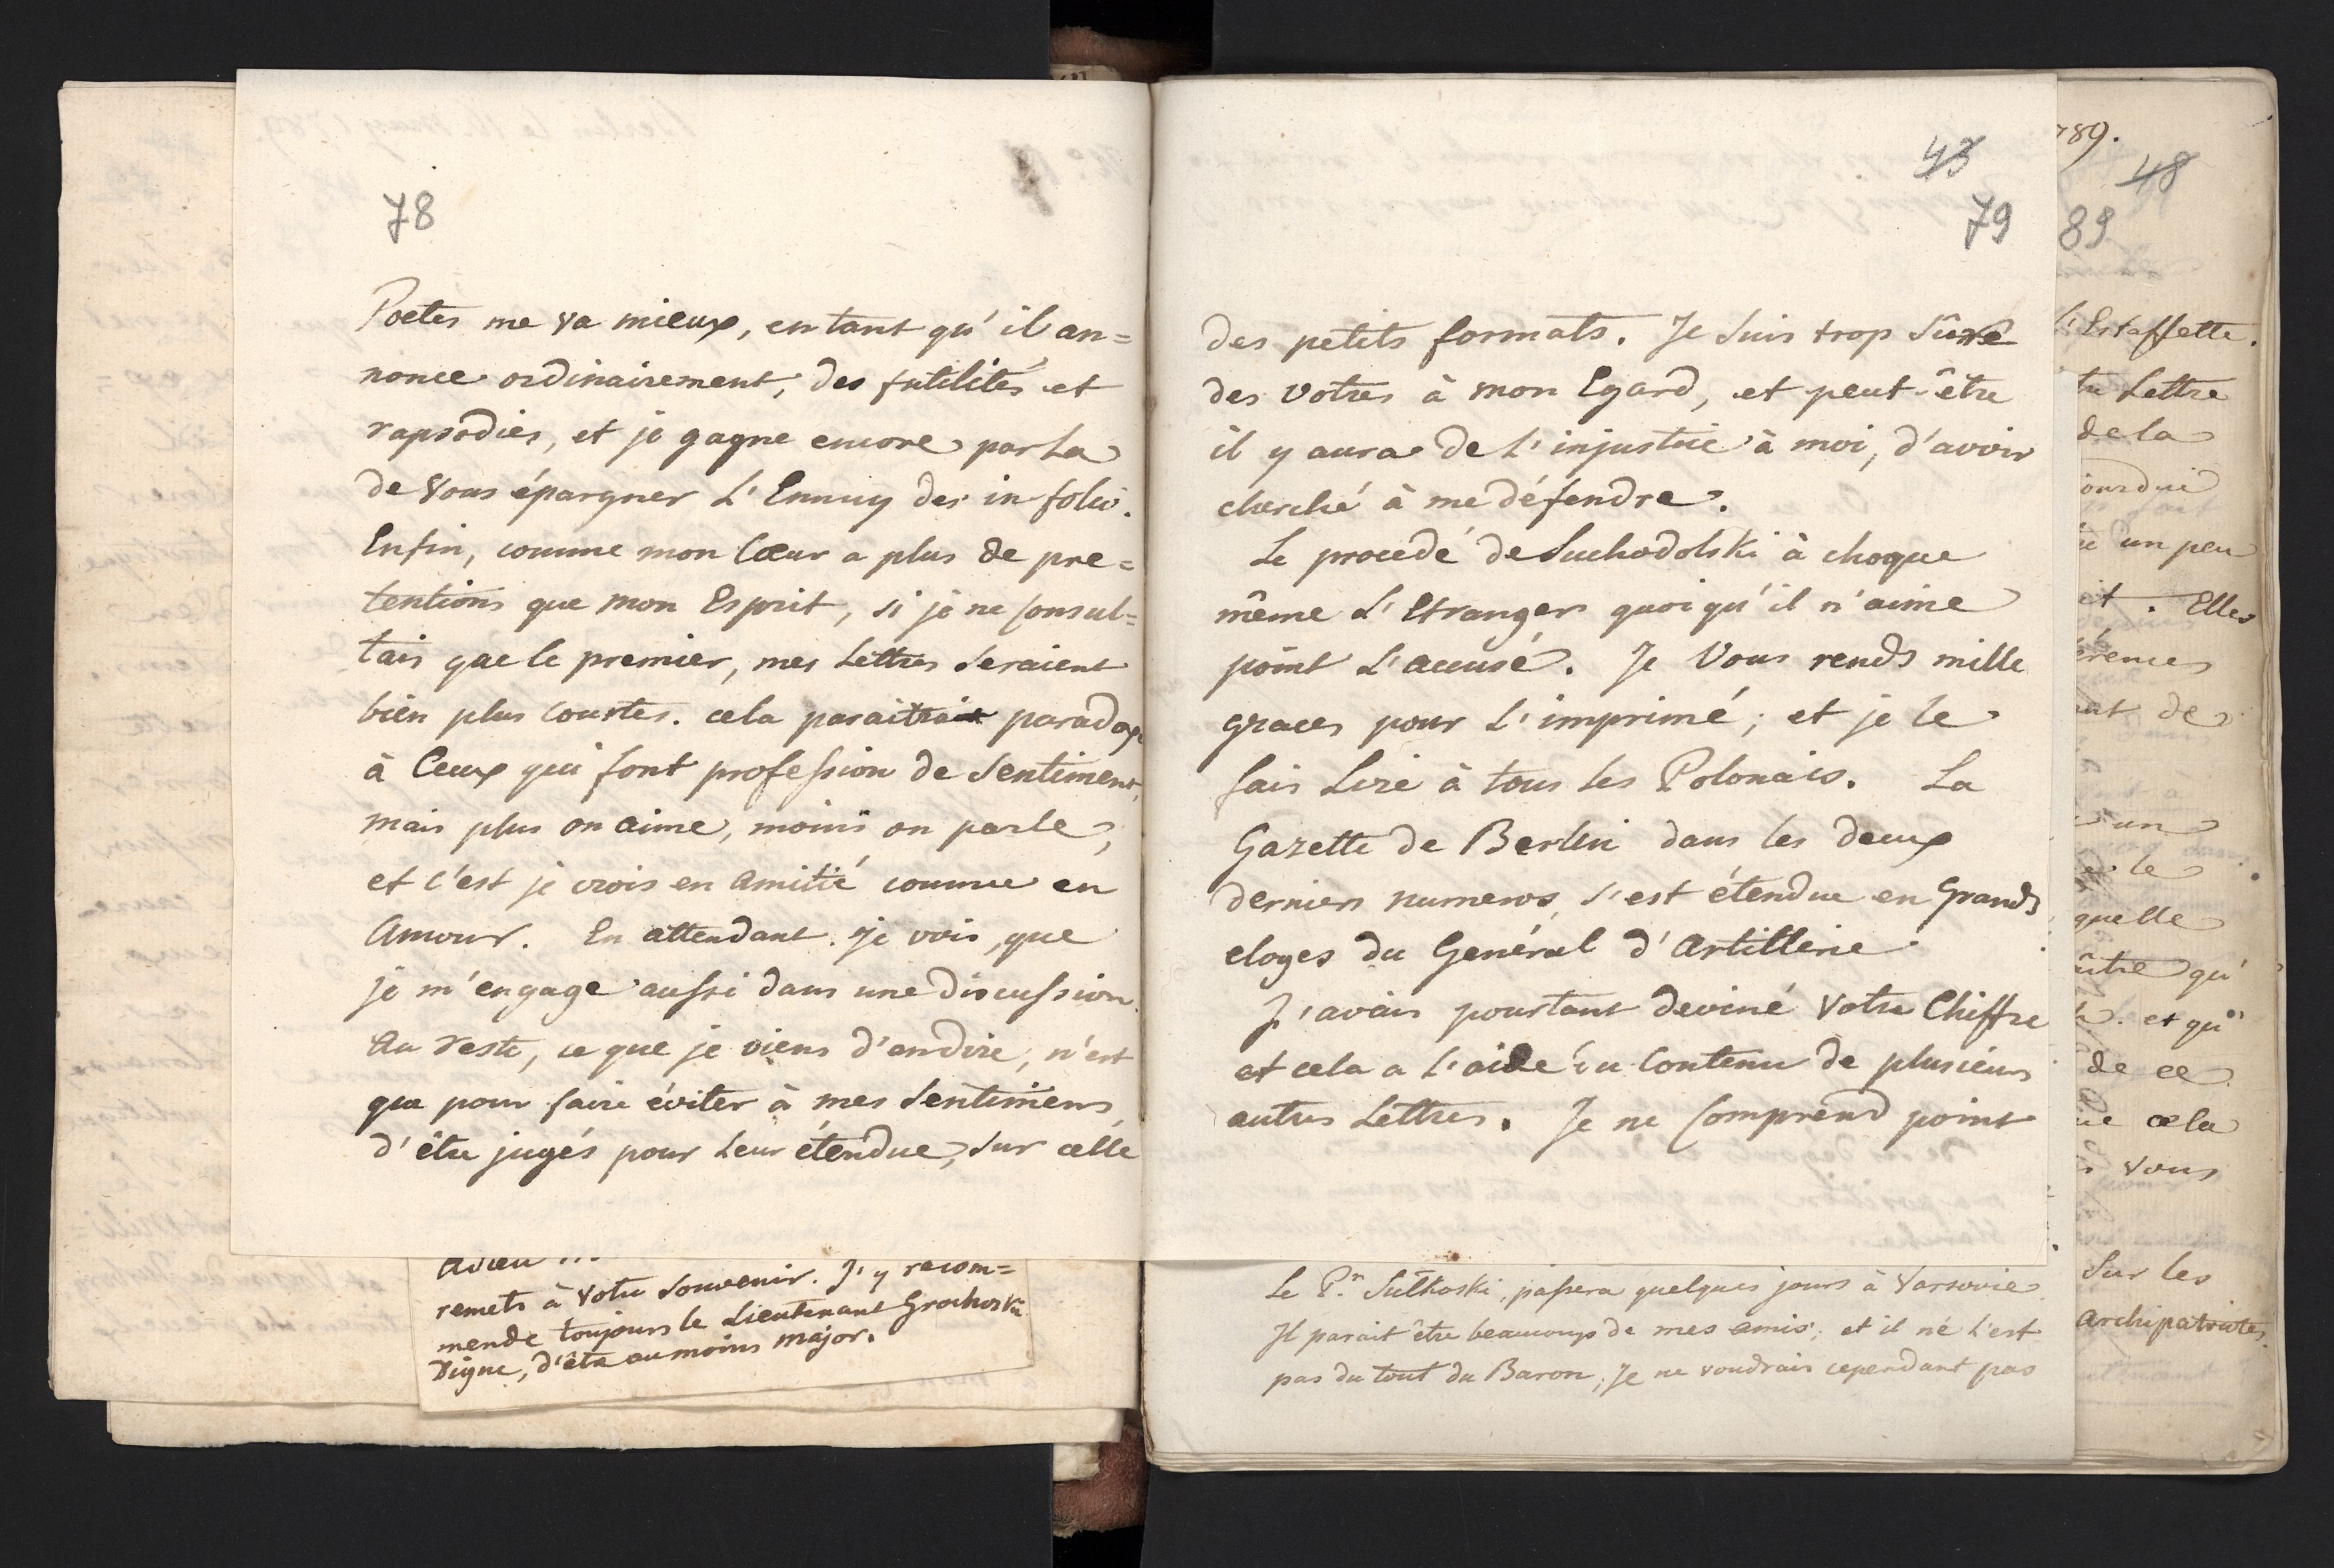 78
Poetes me va mieux, en tant qu'il an=
nonce ordinairement, des futilités et
rapsodies, et je gagne encore par La
de Vous épargner L'Ennuy des in folio.
Enfin, comme mon Cœur a plus de pre=
tentions que mon Esprit, si je ne Consul=
tais que le premier, mes Lettres Seraient
bien plus Courtes. cela paraitrait paradoxe
à Ceux qui font profession de Sentiment,
mais plus on aime, moins on parle,
et c'est je crois en amitié comme en
Amour. En attendant je vois, que
je m'engage aussi dans une discussion.
Au reste, ce que je viens d'en dire, n'est
que pour faire éviter à mes Sentimens,
d'être jugés pour Leur étendue, Sur celle
Adieu
remets à Votre Souvenir. J'y recom=
mende toujours le Lieutenant Grochoski
Digne, d'être au moins major.
43
79
des petits formats. Je Suis trop Sûre
des Votres à mon Egard, et peut-être
il y aura de L'injustice à moi, d'avoir
cherché à me défendre.
Le procedé de Suchodolski à choque
même L'Etranger quoiqu'il n'aime
point L'accusé. Je Vous rends mille
graces pour L'imprimé; et je le
fais Lire à tous les Polonais. La
Gazette de Berlin dans les deux
derniers numeros, s'est étendue en Grands
eloges du Genéral d'Artillerie
J'avais pourtant deviné Votre Chiffre
et cela a L'aide du Contenu de plusieurs
autres Lettres. Je ne Comprend point
Le P.ce Sulkoski, passera quelques jours à Varsovie
Il parait être beaucoup de mes amis, et il ne L'est
pas du tout du Baron, Je ne voudrais cependant pas
789.
48
89
L'Estaffette.
Lettre
de la
un peu
Elles
de
un
le
quelle
qu'
et qu'
de ce
cela
Vous
Sur les
Archipatriotes